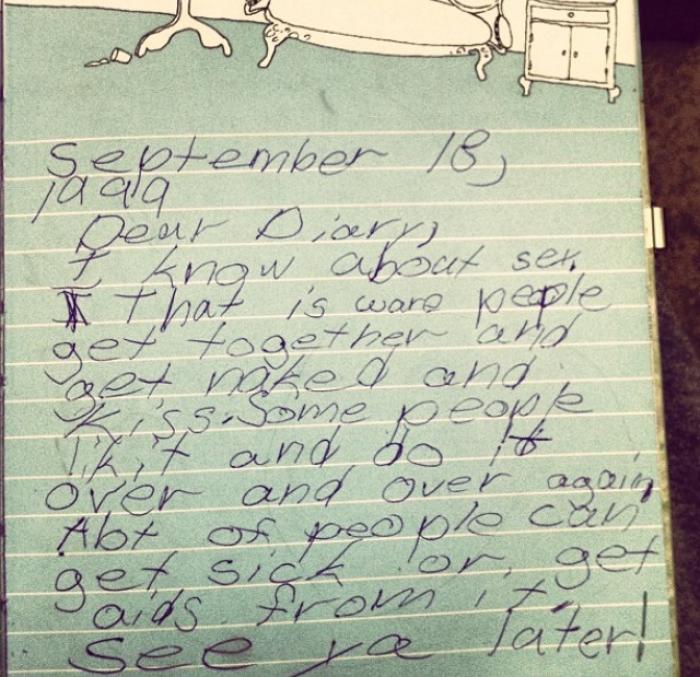 September 18,
1999
Dear Diary,
I know about sex.
That is ware people
get together and
get naked and
kiss. Some people
lik it and do it
over and over again,
Alot of people can
get sick or get
aids from it.
See ya later!